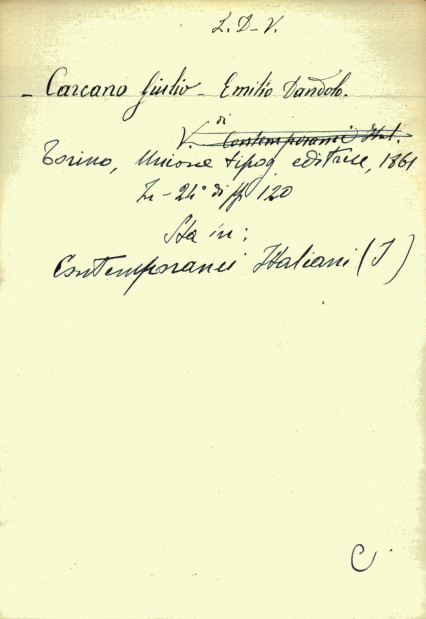 L. D-V.
- Carcano Giulio - Emilio Dandolo.
di
V. Contemporanei Ital.
Torino, Unione tipog editrice, 1861
In - 24° di pp 120
Sta in:
Contemporanei Italiani (I)
C